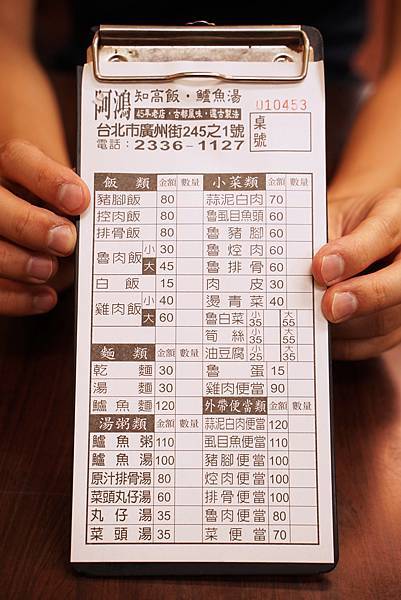 阿鴻 知高飯・鱸魚湯
45年老店・古都風味・遵古製法
010453
台北市廣州街245之1號
電話：2336-1127
桌號
飯類 金額 數量
豬腳飯 80
控肉飯 80
排骨飯 80
魯肉飯 小 30
大 45
白飯 15
雞肉飯 小 40
大 60
麵類 金額 數量
乾麵 30
湯麵 30
鱸魚麵 120
湯粥類 金額 數量
鱸魚粥 110
鱸魚湯 100
原汁排骨湯 80
菜頭丸仔湯 60
丸仔湯 35
菜頭湯 35
小菜類 金額 數量
蒜泥白肉 70
魯虱目魚頭 60
魯豬腳 60
魯焢肉 60
魯排骨 60
肉皮 30
燙青菜 40
魯白菜 小35 大55
筍絲 小35 大55
油豆腐 小25 大35
魯蛋 15
雞肉便當 90
外帶便當類 金額 數量
蒜泥白肉便當 120
虱目魚便當 110
豬腳便當 100
焢肉便當 100
排骨便當 100
魯肉便當 80
菜便當 70